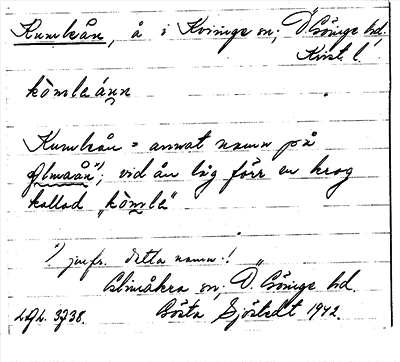 Kumleån, å i Kviinge sn; Ö. Göinge hd.
Krist. l.
kòmleánn
Kumleån = annat namn på
Almaån¹); vid ån låg förr en krog
kallad "kòmle"
¹) jmfr. detta namn!
Glimåkra sn, Ö. Göinge hd.
Gösta Sjöstedt 1942.